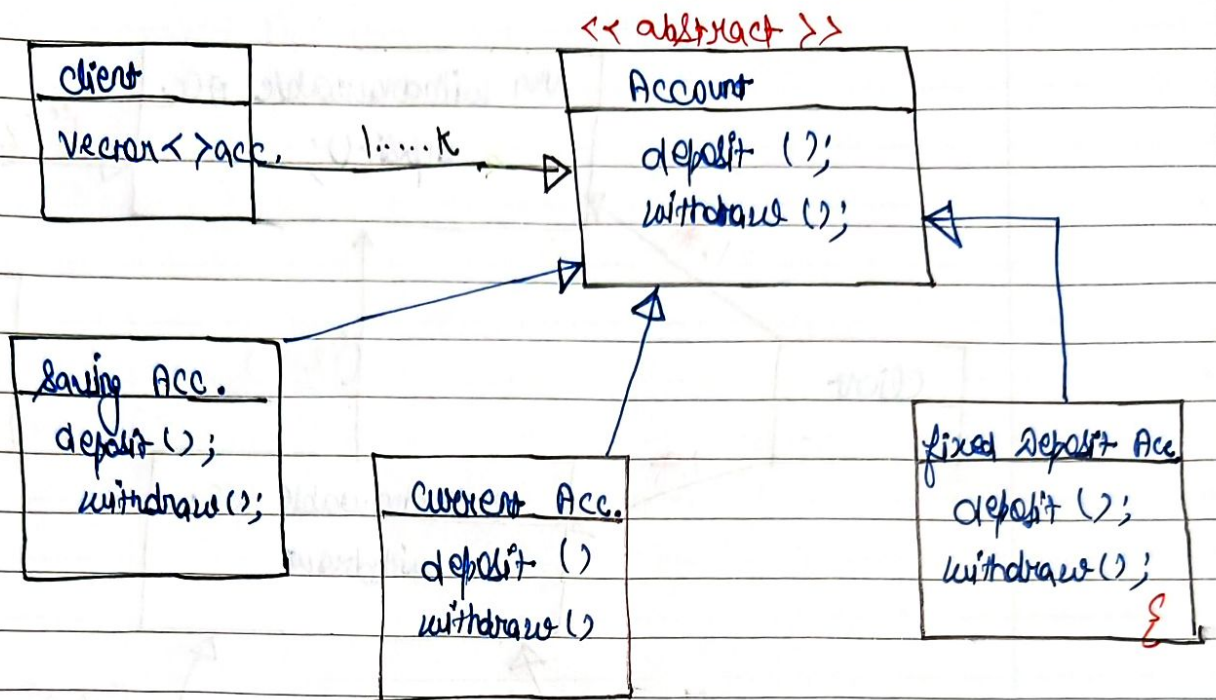 << abstract >>
Client
Vector< >acc.
1.....*
Account
deposit ();
withdraw ();
Saving Acc.
deposit();
withdraw();
Current Acc.
deposit ()
withdraw()
fixed Deposit Acc
deposit ();
withdraw();